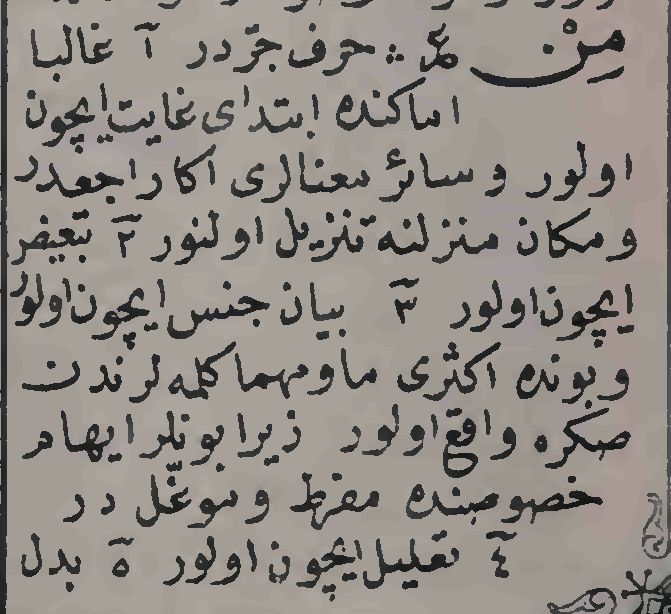 مِنْ ع م حرف جرّدر ١ غالبا
اماكنده ابتداى غايت ايچون
اولور و سائر معنالرى اكا راجعدر
و مكان منزلنه تنزيل اولنور ٢ تبعيض
ايچون اولور ٣ بيان جنس ايچون اولور
و بونده اكثرى ما و مهما كلمه لرندن
صكره واقع اولور زيرا بونلر ايهام
خصوصنده مفرط و موغّل در
٤ تعليل ايچون اولور ٥ بدل